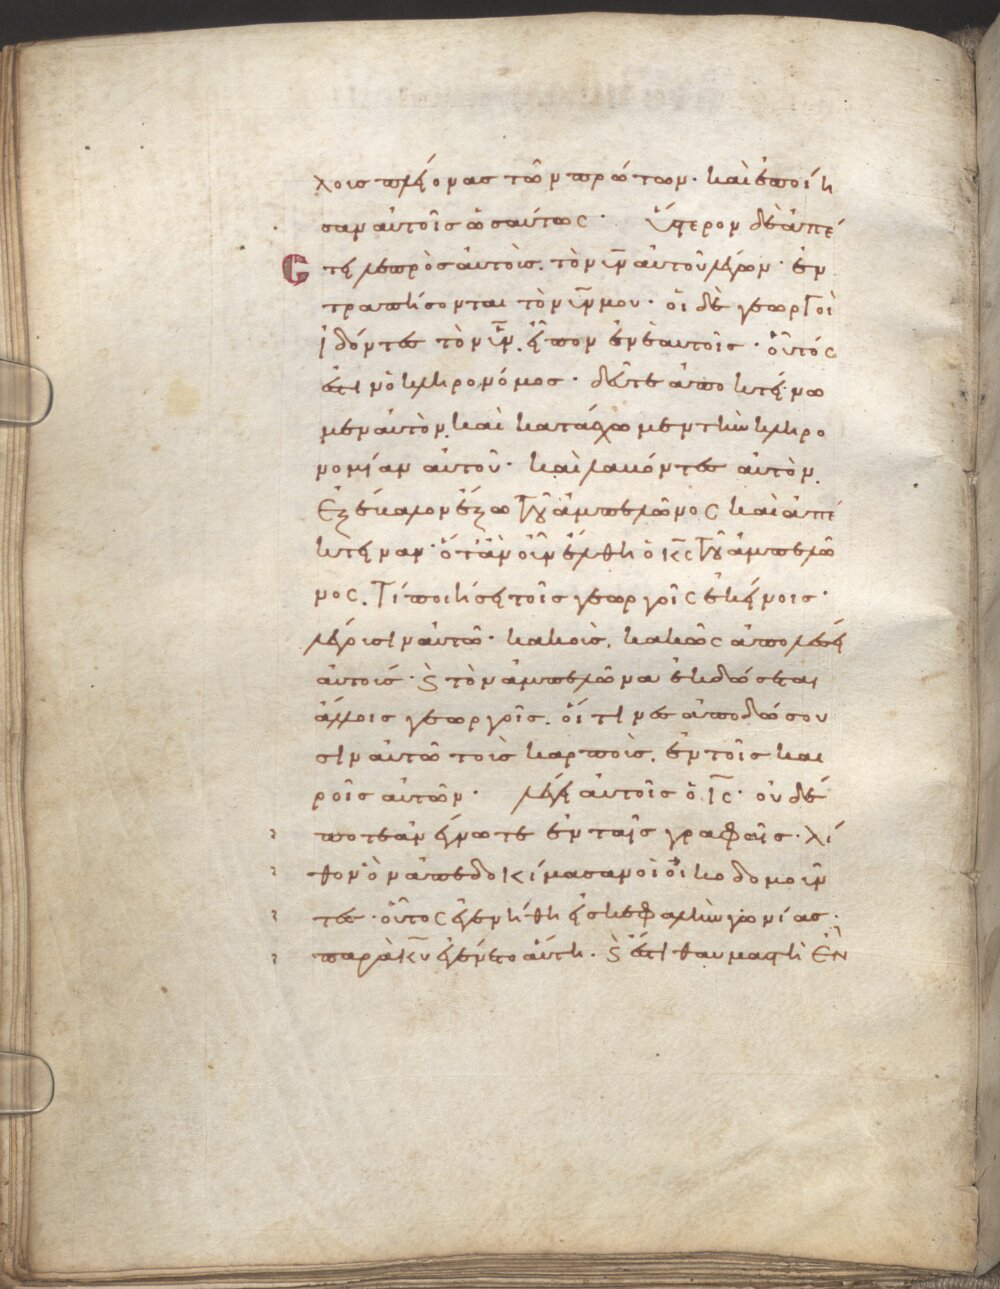 λους πλείονας τῶν πρώτων· καὶ ἐποίη
σαν αὐτοῖς ὡσαύτως· ὕστερον δὲ ἀπέ
στειλε πρὸς αὐτοὺς. τὸν υἱν αὐτοῦ λέγων· ἐν
τραπήσονται τὸν υἱν μου· οἱ δὲ γεωργοὶ
ἰδόντες τὸν υἱν. εἶπον ἐν ἑαυτοῖς· οὗτός
ἐστιν ὁ κληρονόμος· δεῦτε ἀποκτεί νω
μεν αὐτὸν. καὶ κατάσχωμεν τὴν κληρο
νομίαν αὐτοῦ· καὶ λαβόντες αὐτὸν.
ἐξέβαλον ἔξω τοῦ ἀμπελῶνος καὶ ἀπέ
κτειναν· ὅταν οὖν ἔλθη ὁ κς τοῦ ἀμπελῶ
νος. τί ποιήσει τοῖς γεωργοῖς ἐκείνοις·
λέγουσιν αὐτῶ· κακοὺς, κακῶς ἀπολέσει
αὐτούς· ϗ τὸν ἀμπελῶνα ἐκδώσεται
ἄλλοις γεωργοῖς. οἵτινες ἀποδώσου
σιν αὐτῶ τοὺς καρποὺς. ἐν τοῖς και
ροῖς αὐτῶν· λέγει αὐτοῖς ὁ ις· οὐδέ
ποτε ἀνέγνωτε ἐν ταῖς γραφαῖς· λί
θον ὃν ἀπεδοκίμασαν οἱ οἰκοδομοῦν
τες· οὗτος ἐγενήθη εἰς κεφαλὴν γωνίας·
παρὰ κυ ἐγένετο αὕτη· ϗ ἔστι θαυμαστὴ ἐν